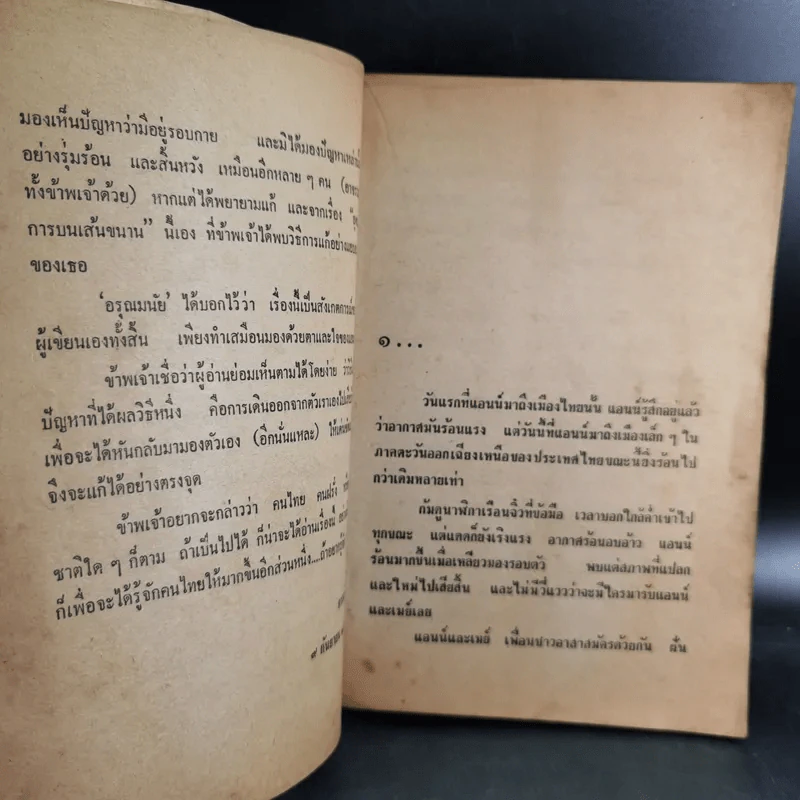 มองเห็นปัญหาว่ามีอยู่รอบกาย และมิได้มองปัญหาเหล่านั้น
อย่างรุ่มร้อน และสิ้นหวัง เหมือนอีกหลาย ๆ คน
ทั้งข้าพเจ้าด้วย) หากแต่ได้พยายามแก้ และจากเรื่อง
การบนเส้นขนาน” นี้เอง ที่ข้าพเจ้าได้พบวิธีการแก้อย่าง
ของเธอ
‘อรุณมนัย’ ได้บอกไว้ว่า เรื่องนี้เป็นสังเกตการณ์
ผู้เขียนเองทั้งสิ้น เพียงทำเสมือนมองด้วยตาและใจของ
ข้าพเจ้าเชื่อว่าผู้อ่านย่อมเห็นตามได้โดยง่าย
ปัญหาที่ได้ผลวิธีหนึ่ง คือการเดินออกจากตัวเราเองไป
เพื่อจะได้หันกลับมามองตัวเอง (อีกนั่นแหละ)
จึงจะแก้ได้อย่างตรงจุด
ข้าพเจ้าอยากจะกล่าวว่า คนไทย คนฝรั่ง
ชาติใด ๆ ก็ตาม ถ้าเป็นไปได้ ก็น่าจะได้อ่านเรื่องนี้
ก็เพื่อจะได้รู้จักคนไทยให้มากขึ้นอีกส่วนหนึ่ง....ถ้าอยากรู้จัก
๙ กันยายน
๑...
วันแรกที่แอนน์มาถึงเมืองไทยนั้น แอนน์รู้สึกอยู่แล้ว
ว่าอากาศมันร้อนแรง แต่วันนี้ที่แอนน์มาถึงเมืองเล็ก ๆ ใน
ภาคตะวันออกเฉียงเหนือของประเทศไทยขณะนี้ยิ่งร้อนไป
กว่าเดิมหลายเท่า
ก้มดูนาฬิกาเรือนจิ๋วที่ข้อมือ เวลาบอกใกล้ค่ำเข้าไป
ทุกขณะ แต่แดดก็ยังเริงแรง อากาศร้อนอบอ้าว แอนน์
ร้อนมากขึ้นเมื่อเหลียวมองรอบตัว พบแต่สภาพที่แปลก
และใหม่ไปเสียสิ้น และไม่มีวี่แววว่าจะมีใครมารับแอนน์
และเมย์เลย
แอนน์และเมย์ เพื่อนชาวอาสาสมัครด้วยกัน ลั่น